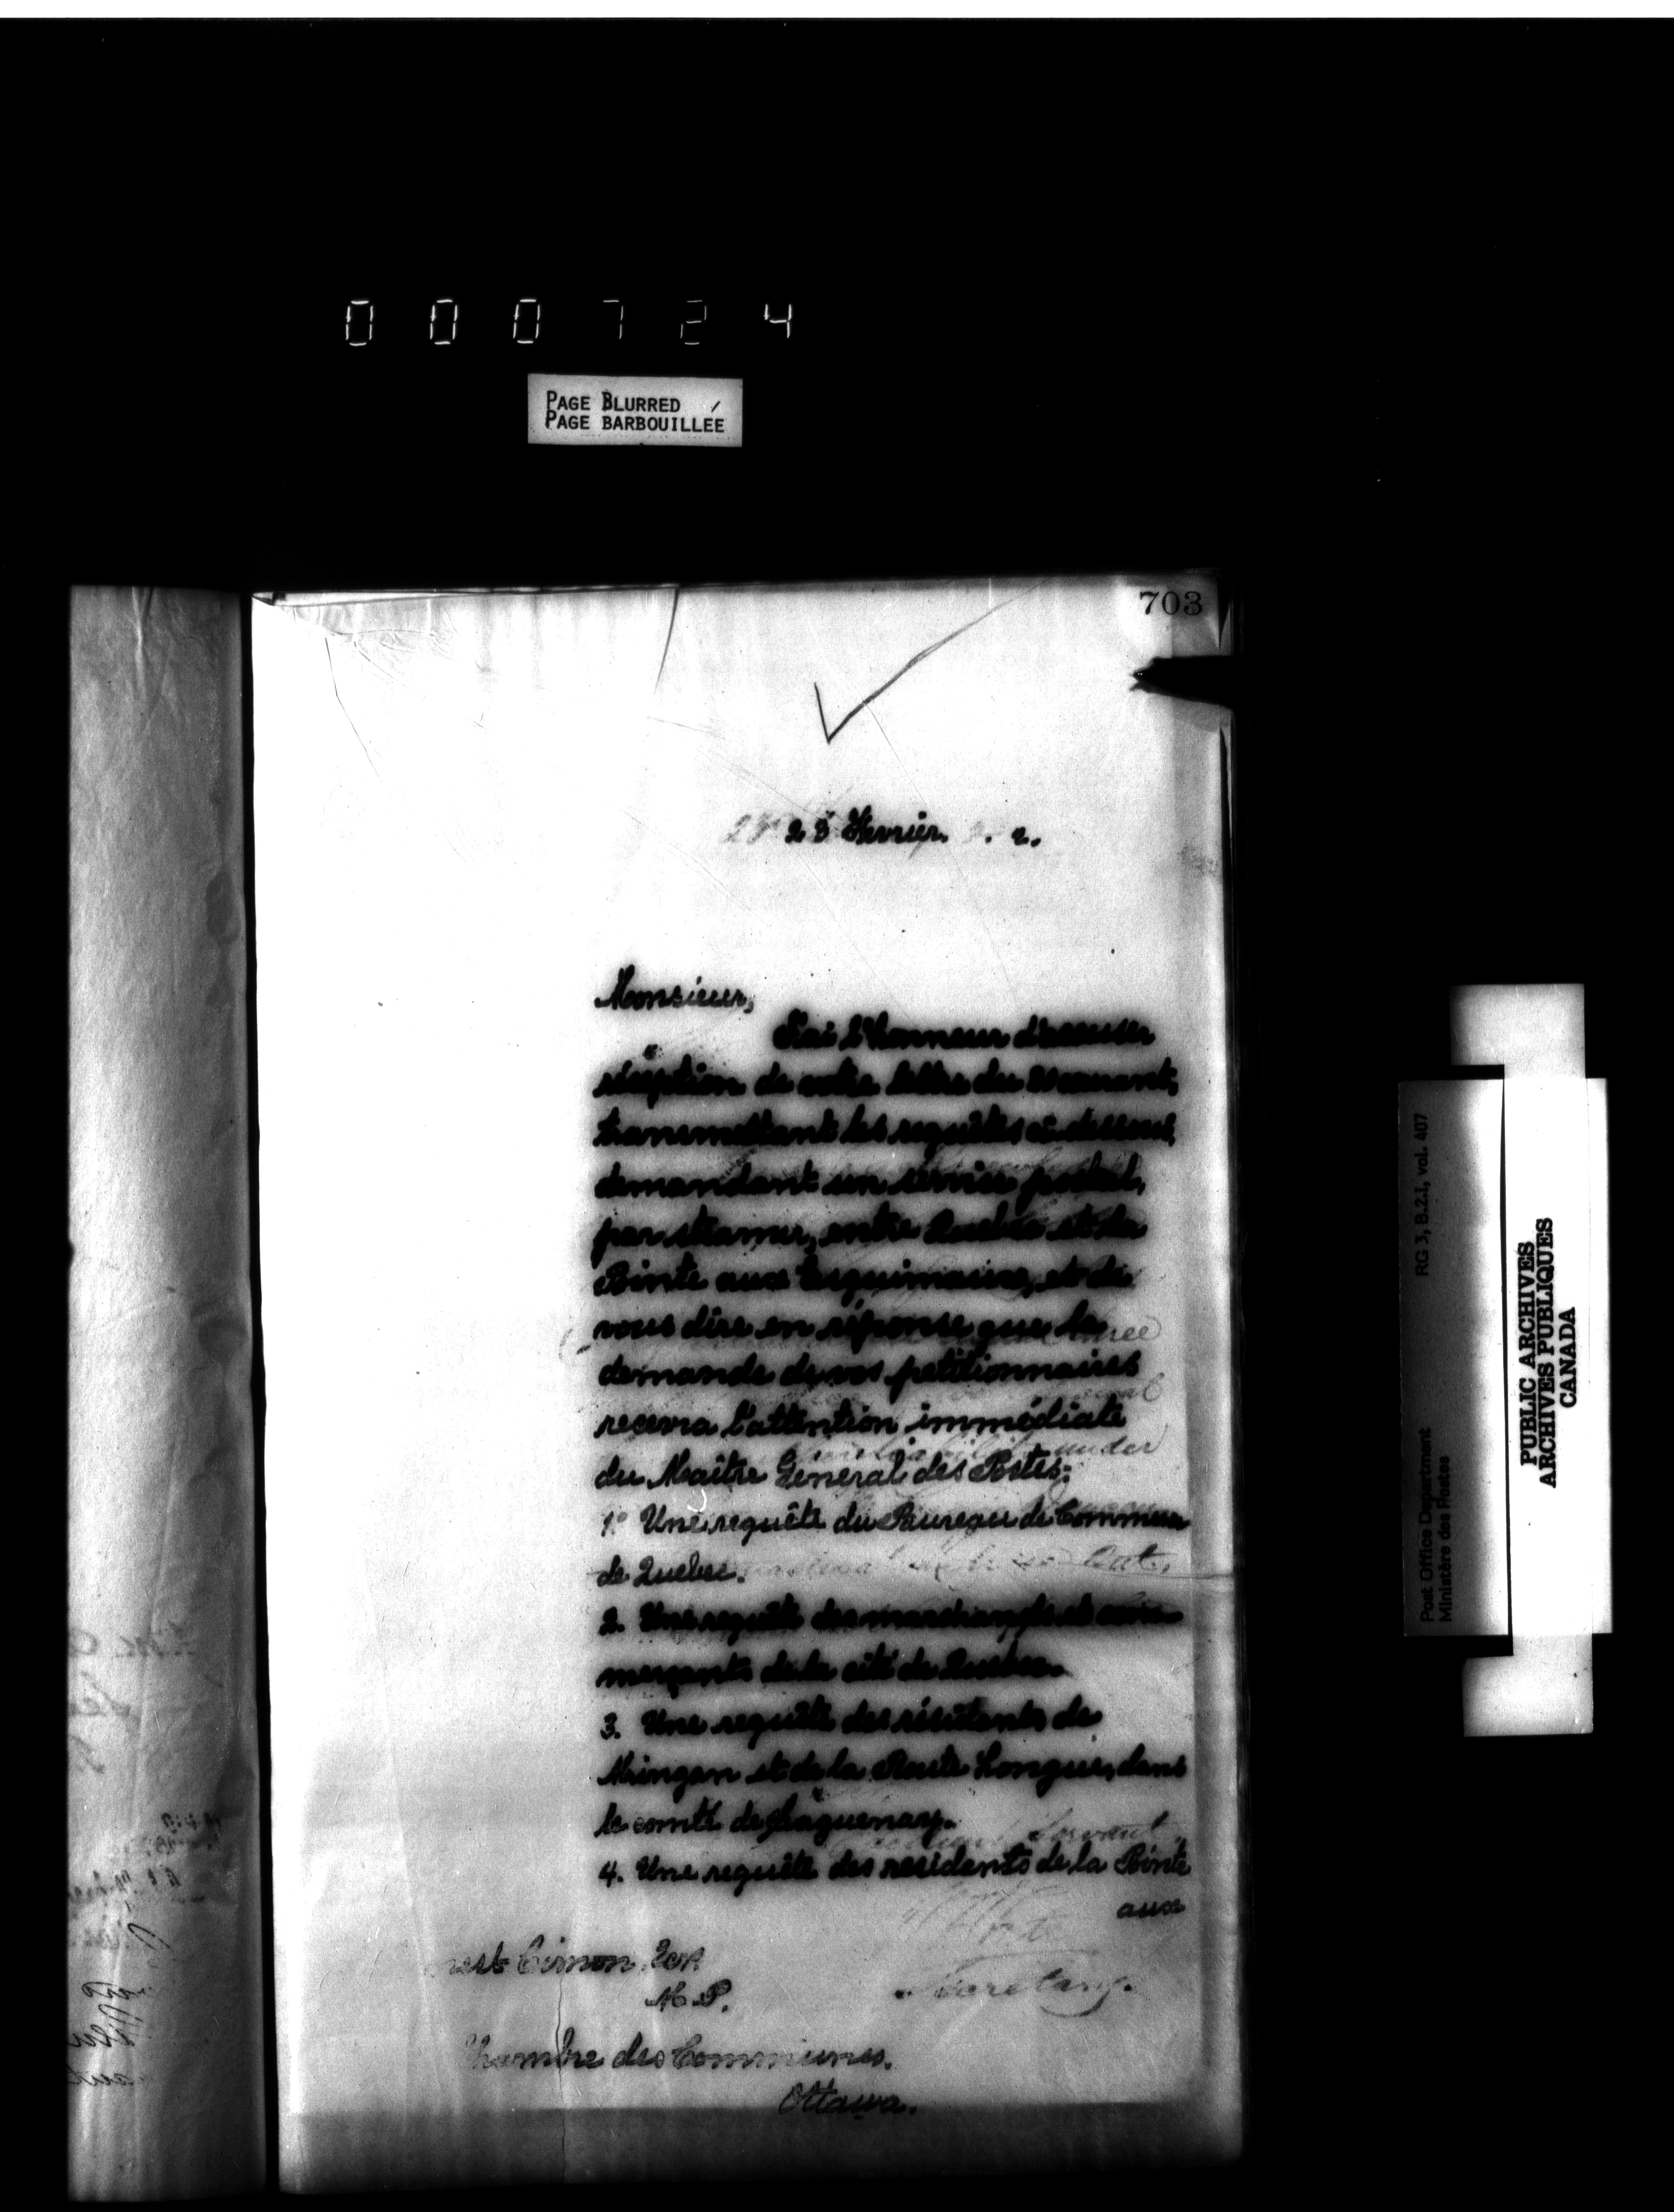 000724
PAGE BLURRED
PAGE BARBOUILLÉE
703
23 Fevrier. . 2.
Monsieur,
J'ai l'honneur d'accuser
réception de votre lettre du 20 courant,
transmettant les requêtes ci-dessous,
demandant un service postal,
par steamer, entre Quebec et la
Pointe aux Esquimaux, et de
vous dire en réponse que la
demande de vos petitionnaires
recevra l'attention immédiate
du Maître General des Postes:
1.º Une requête du Bureau de Commerce
de Quebec.
2. Une requête des marchands et com-
merçants de la cité de Quebec.
3. Une requête des résidents de
Mingan et de la Pointe Longue, dans
le comté de Saguenay.
4. Une requête des residents de la Pointe
aux
Cimon, Ecr
M. P.
Chambre des Communes.
Ottawa.
Secretary.
Post Office Department
Ministère des Postes
RG 3, B.2.1, vol. 407
PUBLIC ARCHIVES
ARCHIVES PUBLIQUES
CANADA